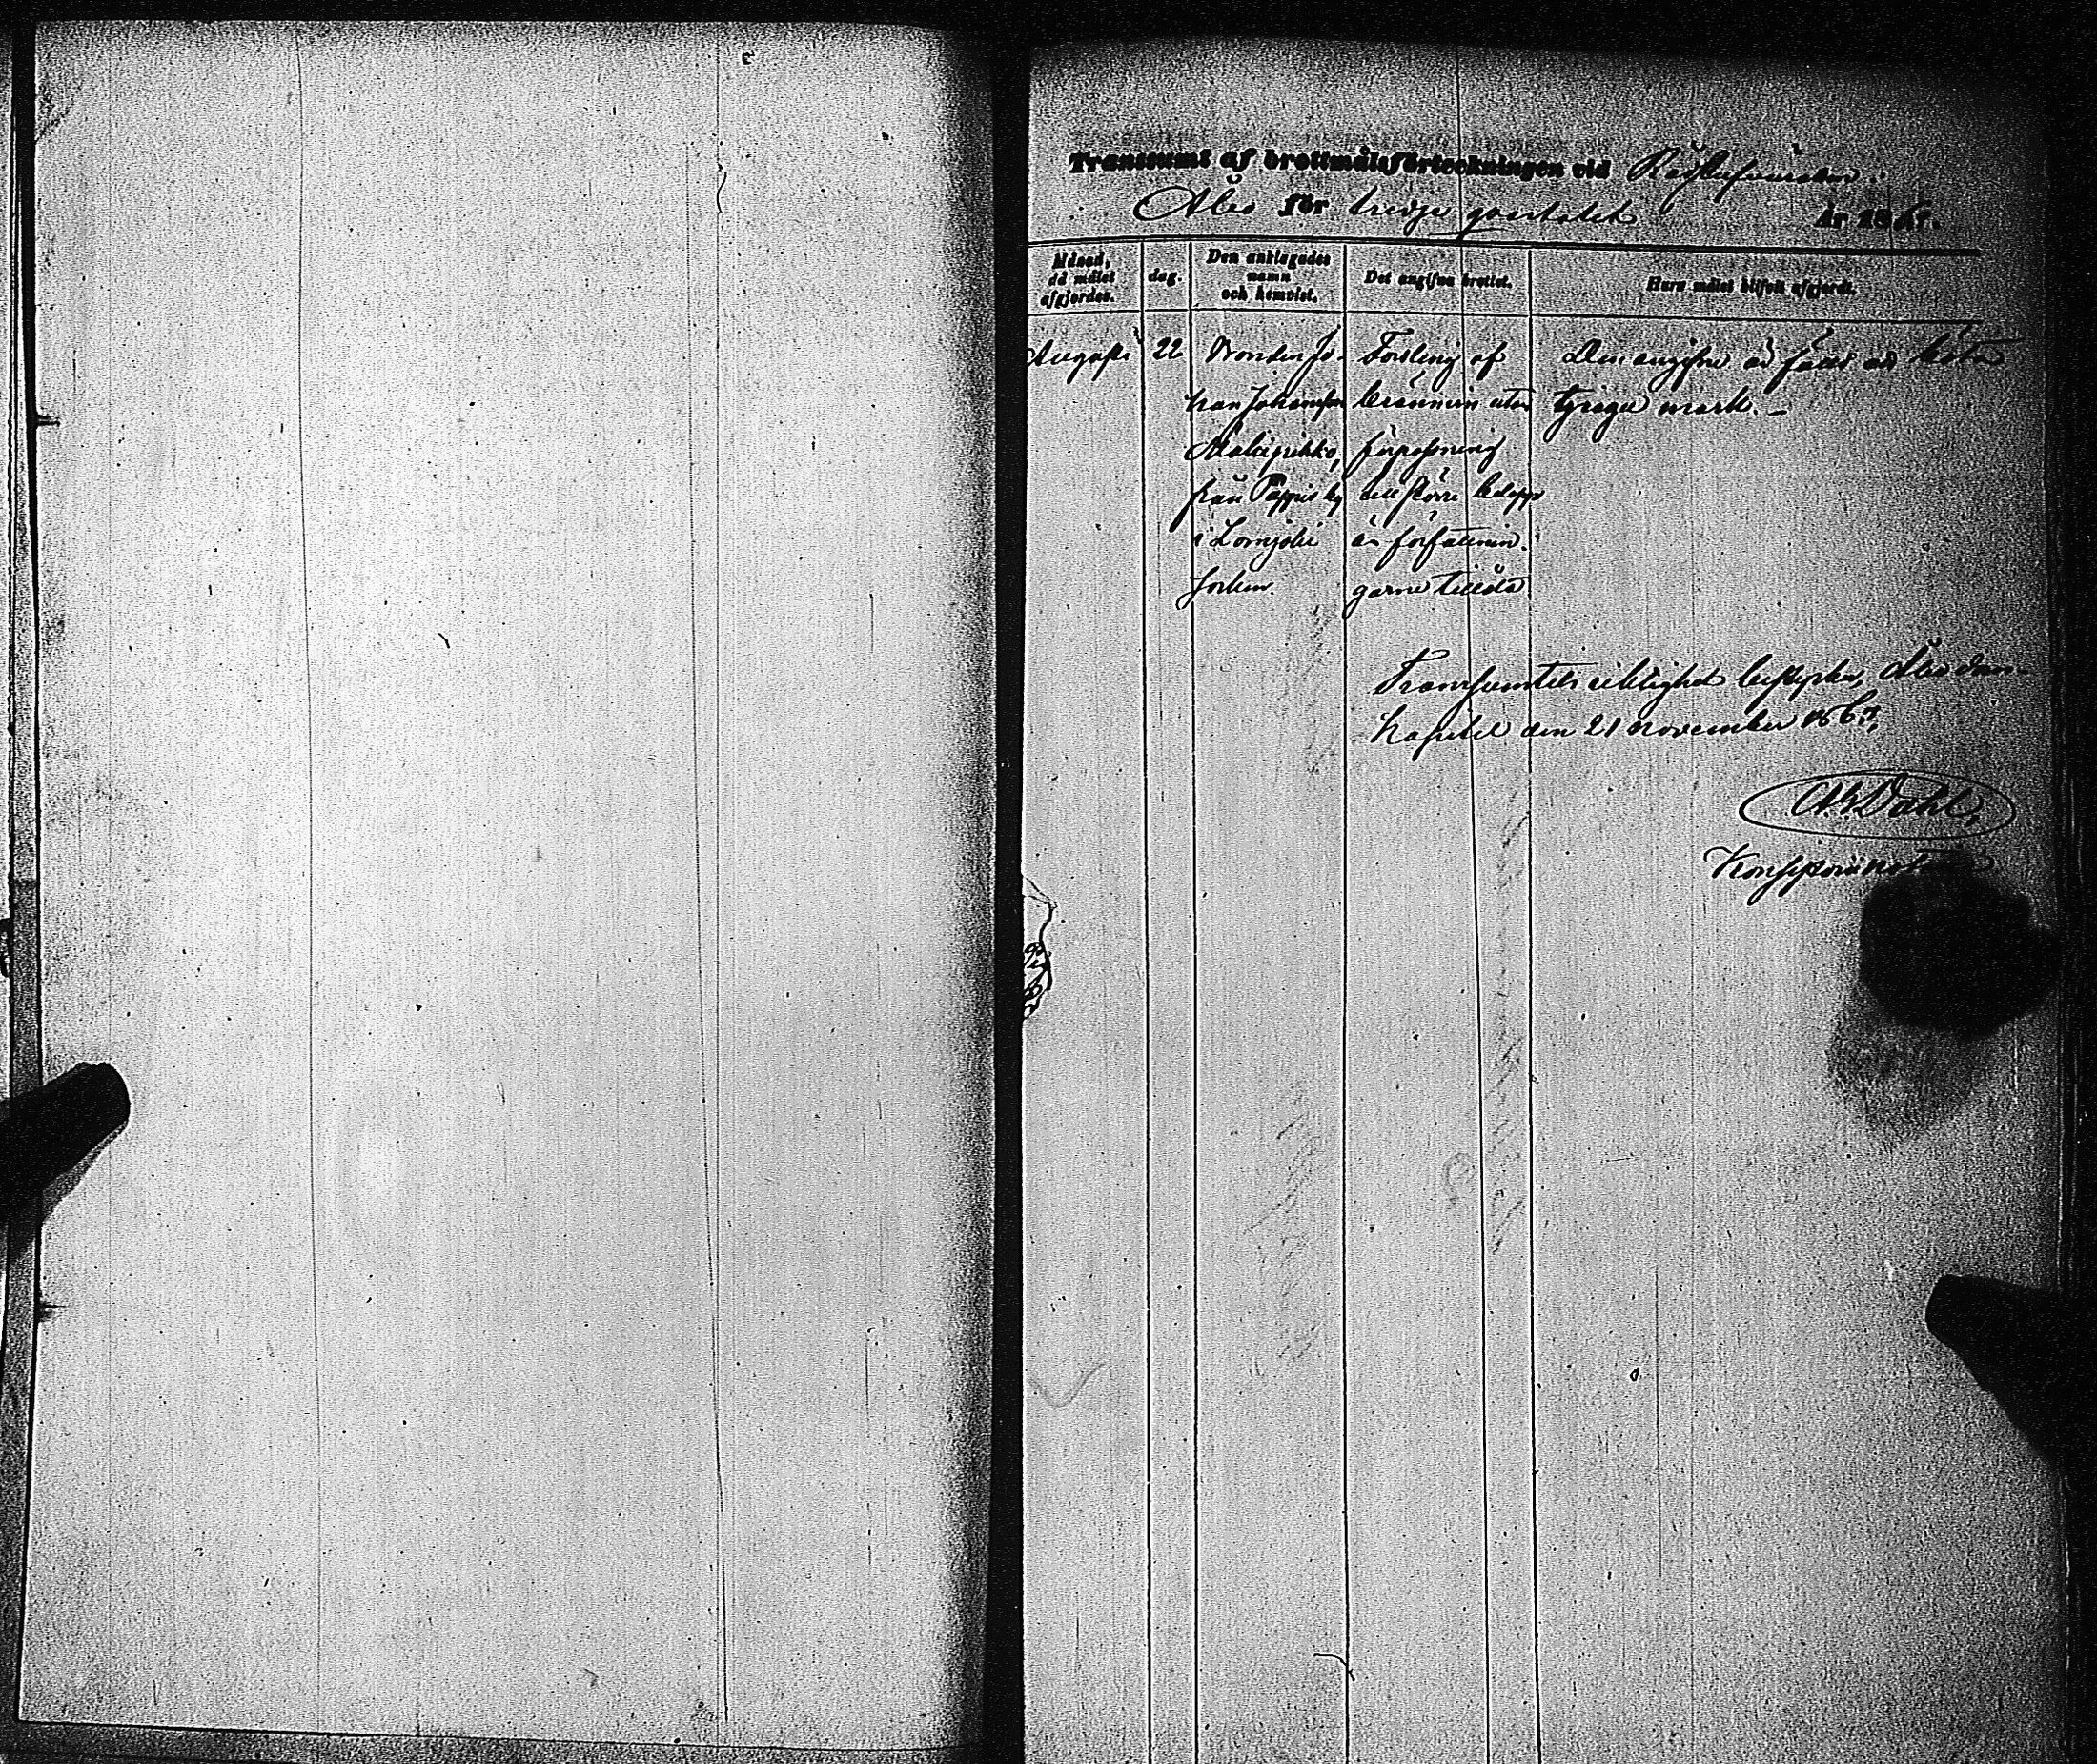 Transsumt af brottmålsförteckningen vid Rådstufvurätten i
Åbo för tredje qvartalet År 1867.
Månad, då målet afgjordes.
dag.
Den anklagades namn och hemvist.
Det angifna brottet.
Huru målet blifvit afgjordt.
Augusti
22
Bonden Jo-
han Johansson
Mäkipirkko,
från Pappis by
i Lomjoki
socken.
Forsling af
brännvin utan
förpassning
till större belopp
än författnin-
garne tillåta
Den angifne är fälld att böta
tjugu mark. –
Transsumtets riktighet bestyrker, Åbo Dom-
kapitel den 21 November 1867,
Dahl,
Konsistorii not